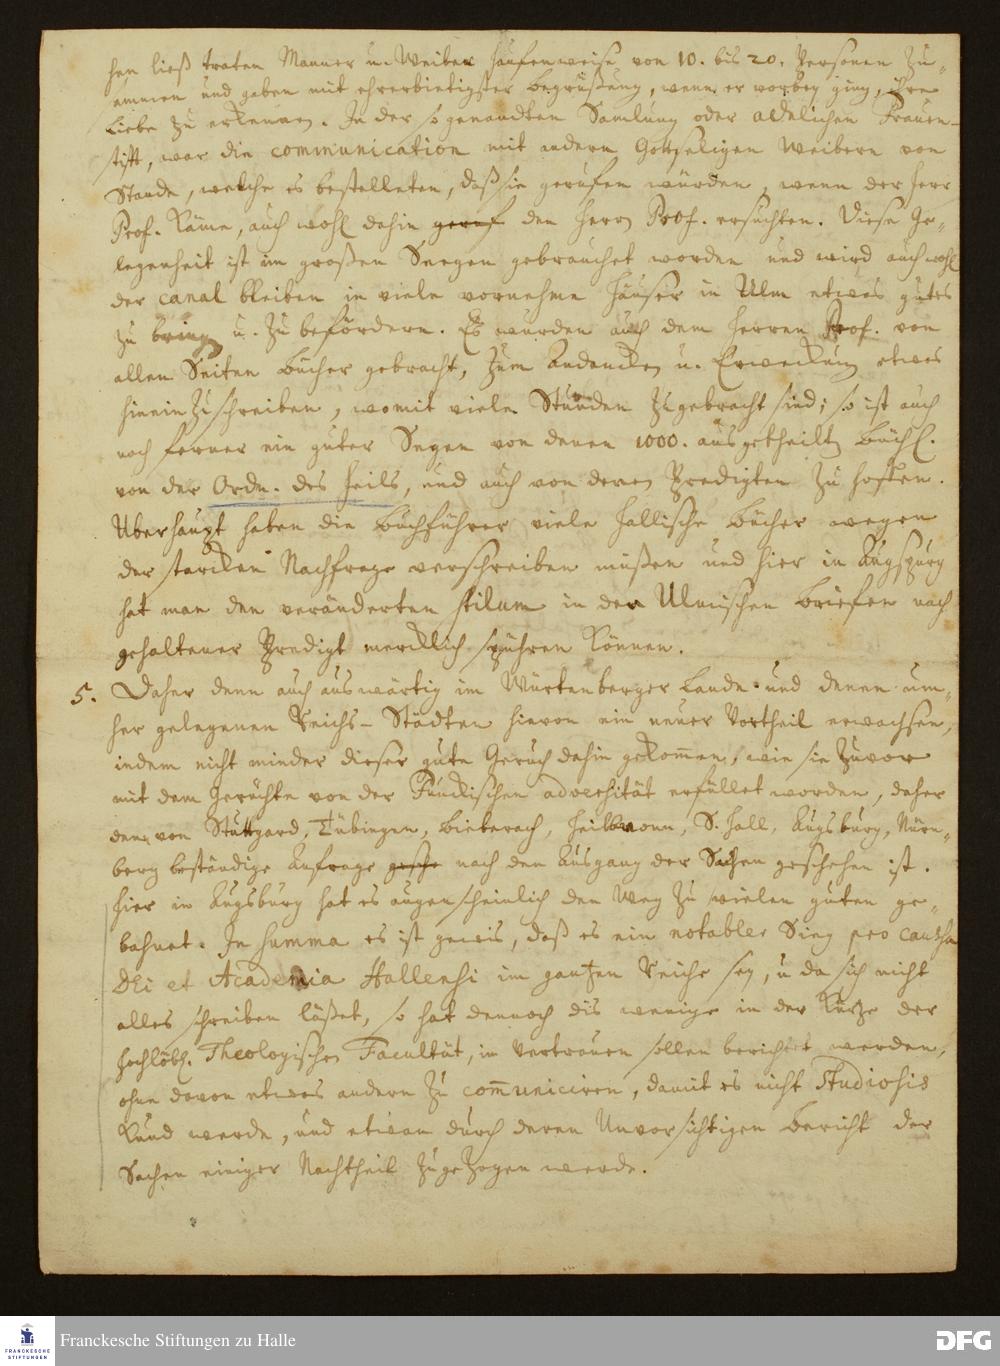 hen ließ traten Männer u. Weiber hauffenweise von 10. bis 20. Personen zu-
ammen und gaben mit ehrerbietigster begrüßung, wenn er vorbey ging, ihre
Liebe zu erkennen. In der so genandten Samlung oder adelichen Frauen-
stifft, war die communication mit andern Gottseligen Weibern von
Stande, welche es bestelleten, daß sie geruffen würden, wenn der Herr
Prof. käme, auch wohl dahin geruf den Herrn Prof. ersuchten. Diese Ge-
legenheit ist im großen Seegen gebrauchet worden und wird auch wohl
der canal bleiben in viele vornehme Häuser in Ulm etwas gutes
zu bringen u. zu befördern. Es wurden auch dem Herren Prof. von
allen Seiten bücher gebracht, zum Andencken u. Erweckung etwas
hinein zu schreiben, womit viele Stunden zugebracht sind; so ist auch
noch ferner ein guter Segen von denen 1000. ausgetheilten büchl.
von der Ordn. des Heils, und auch von denen Predigten zu hoffen.
Überhaupt haben die buchführer viele Hallische bücher wegen
der starcken Nachfrage verschreiben müßen und hier in Augspurg
hat man den veränderten stilum in den Ulmischen briefen nach
gehaltener Predigt mercklich spühren können.
5. Daher denn auch auswärtig im Würtenberger Lande und denen um-
her gelegenen Reichs-Städten hievon ein neuer Vortheil erwachsen,
indem nicht minder dieser gute Geruch dahin gekom̅en, wie sie zuvor
mit dem Gerüchte von der Funckischen adversität erfüllet worden, daher
denn von Stuttgard, Tübingen, Bieberach, Heilbronn, S. Hall, Augsburg, Nürn-
berg beständige Anfrage gesche nach den Ausgang der Sachen geschehen ist.
Hier in Augsburg hat es augenscheinlich den Weg zu vielen guten ge-
bahnet. In summa es ist gewis, daß es ein notabler Sieg pro causa
DEi et Academia Hallensi im gantzen Reiche sey, u da sich nicht
alles schreiben läßet, so hat dennoch dis wenige in der Kürze der
Hochlöbl. Theologischen Facultät, im Vertrauen sollen berichtet werden,
ohne davon etwas andern zu com̅uniciren, damit es nicht Studiosis
kund werde, und etwan durch deren Unvorsichtigen bericht der
Sachen einiger Nachtheil zugezogen werde.
FRANCKESCHE
STIFTUNGEN
Franckesche Stiftungen zu Halle
DFG